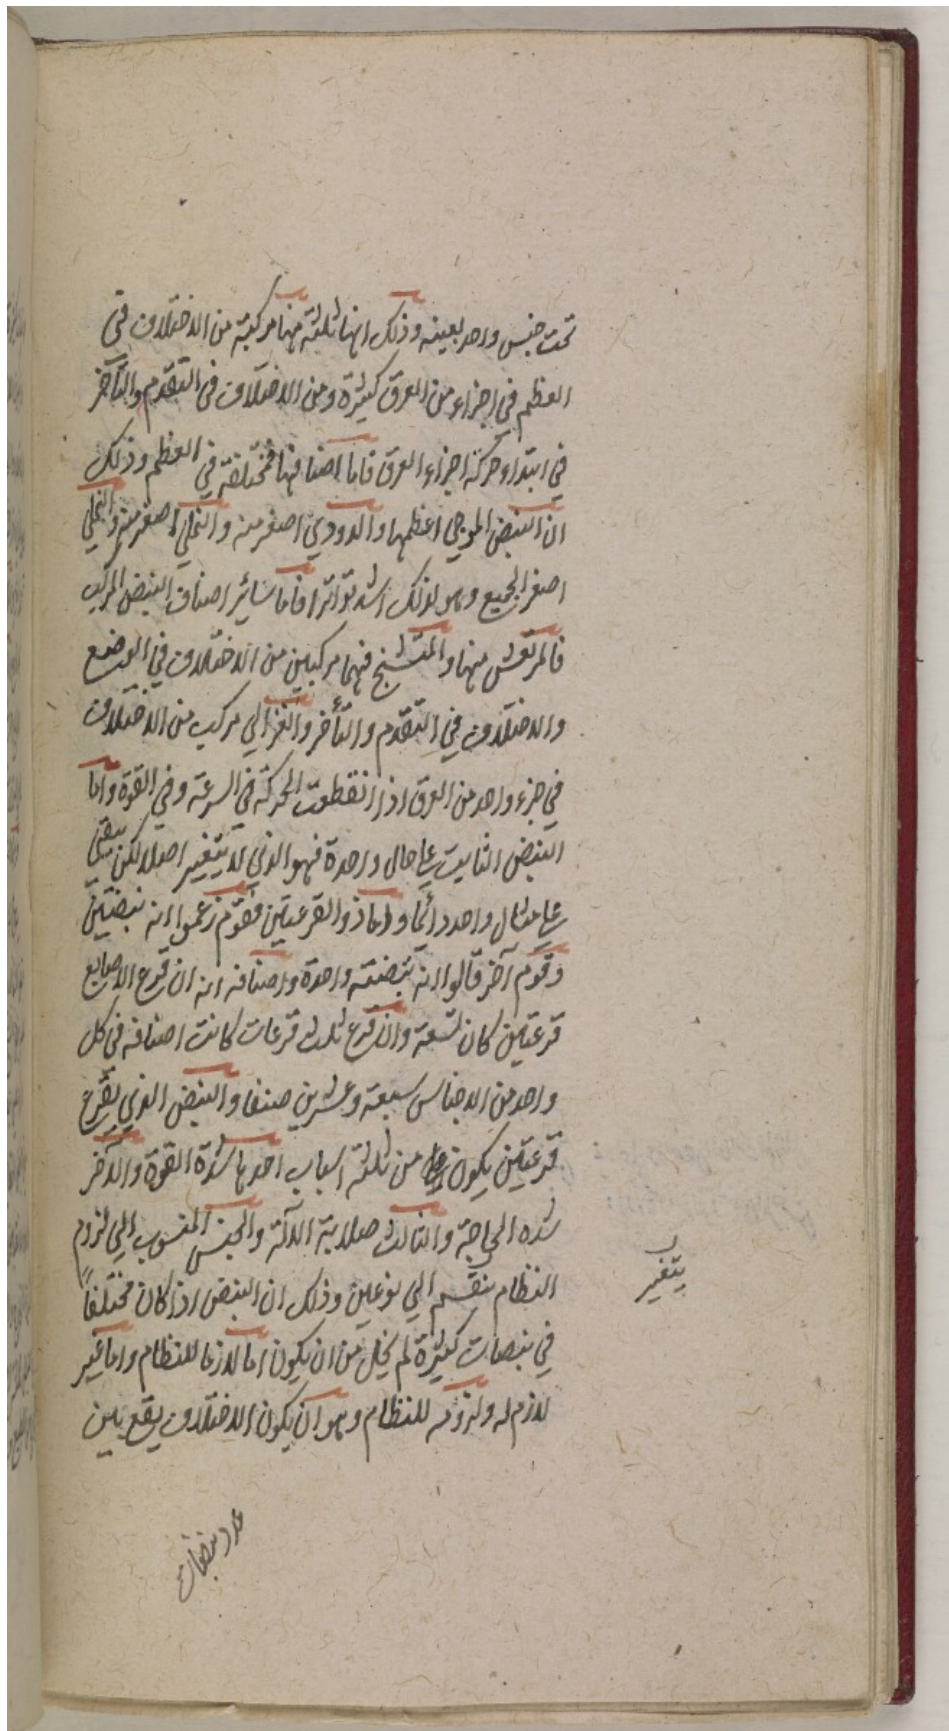 تحت جنس واحد بعينه وذلك انها ثلثة منها مركبة من الاختلاف في
العظم في اجزاء من العرق كثيرة ومن الاختلاف في التقدم والتأخر
في ابتداء حركة اجزاء العرق فاما اصنافها فمختلفة في العظم وذلك
ان النبض الموجي اعظمها والدودي اصغر منه والنملي اصغر منه والنملي
اصغر الجميع وهو لذلك اشد تواترا فاما سائر اصناف النبض المركب
فالمرتعش منها والمتشنج فهما مركبين من الاختلاف في الوضع
والاختلاف في التقدم والتأخر والغزالي مركب من الاختلاف
في جزء واحد من العرق اذا انقطعت الحركة في السرعة وفي القوة واما
النبض الثابت على حال واحدة فهو الذي لا يتغير اصلا لكن يبقى
على مثال واحد دائما واما ذو القرعتين فقوم زعموا انه نبضتين
وقوم آخر قالوا انه نبضة واحدة واصنافه انه ان قرع الاصابع
قرعتين كان تسعة وان قرع ثلث قرعات كانت اصنافه في كل
واحد من الاجناس سبعة وعشرين صنفا والنبض الذي يقرع
قرعتين يكون من ثلثة اسباب احدها شدة القوة والآخر
شده الحاجة والثالث صلابة الآلة والجنس المنسوب الي لزوم
النظام ينقسم الي نوعين وذلك ان النبض اذا كان مختلفاً
في نبضات كثيرة لم يخل من ان يكون اما لازما للنظام واما غير
لازم له ولزومه للنظام وهو ان يكون الاختلاف يقع بين
يتغير
عدد نبضات